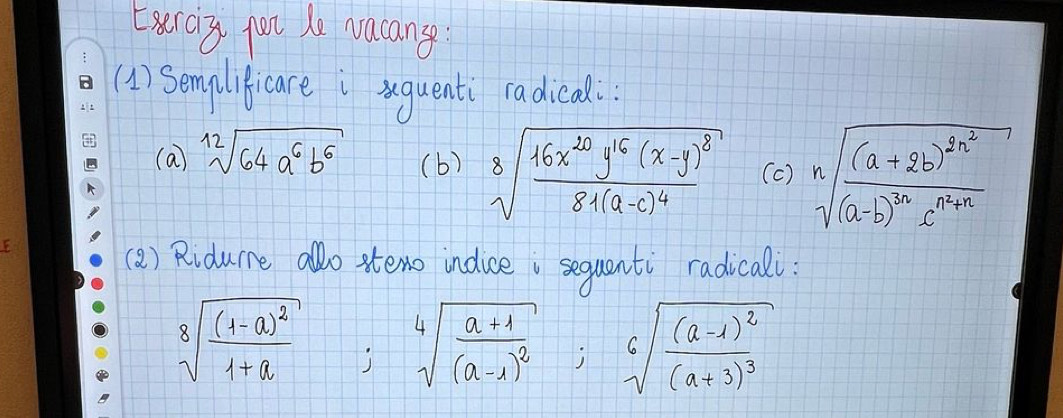 Esercizi per le vacanze:
(1) Semplificare i seguenti radicali:
(a) ¹²√(64 a⁶ b⁶) (b) ⁸√(16x²⁰ y¹⁶ (x-y)⁸ / 81(a-c)⁴) (c) ⁿ√((a+2b)^(2n²) / (a-b)^(3n) c^(n²+n))
(2) Ridurre allo stesso indice i seguenti radicali:
⁸√((1-a)² / 1+a) ; ⁴√(a+1 / (a-1)²) ; ⁶√((a-1)² / (a+3)³)